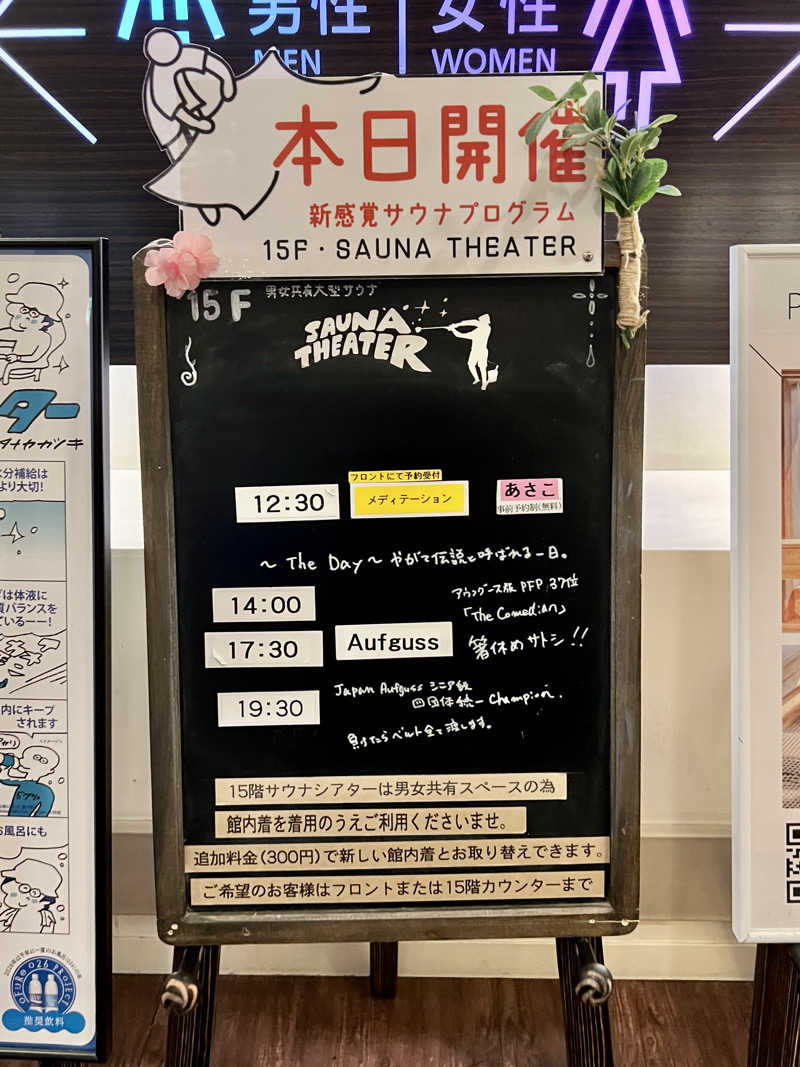 男性
MEN
女性
WOMEN
本日開催
新感覚サウナプログラム
15F・SAUNA THEATER
15F 男女共有大型サウナ
SAUNA
THEATER
フロントにて予約受付
12:30 メディテーション あさこ
事前予約制(無料)
～The Day～やがて伝説と呼ばれる一日。
14:00
17:30
19:30
Aufguss
PFP 37位
「The Comedian」
箸休めサトシ!!
Japan Aufguss シニア級
四団体統一Champion.
負けたらベルト全て渡します。
15階サウナシアターは男女共有スペースの為
館内着を着用のうえご利用くださいませ。
追加料金(300円)で新しい館内着とお取り替えできます。
ご希望のお客様はフロントまたは15階カウンターまで
ター
タナカカツキ
水分補給は
より大切!
は体液に
質バランスを
ているーー!
内にキープ
されます
お風呂にも
OFURO 026 PROJECT
推奨飲料
P